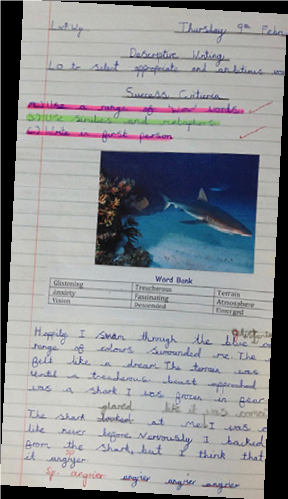 Thursday 9th Febru
Descriptive Writing
LO to select appropriate and ambitious wo
Success Criteria
Use a range of 'wow' words
Use similes and metaphors
c) Write in first person
Word Bank
Glistening Treacherous Terrain
Anxiety Fascinating Atmosphere
Vision Descended Emerged
Happily I swam through the blue
range of colours surrounded me. The
felt like a dream. The terrain was
until a treacherous beast approached
was a shark I was frozen in fear
glared like it was
The shark looked at me. I was
like never before Nervously I backed
from the shark, but I think that
it angryer.
Sp. angrier angrier angrier angrier